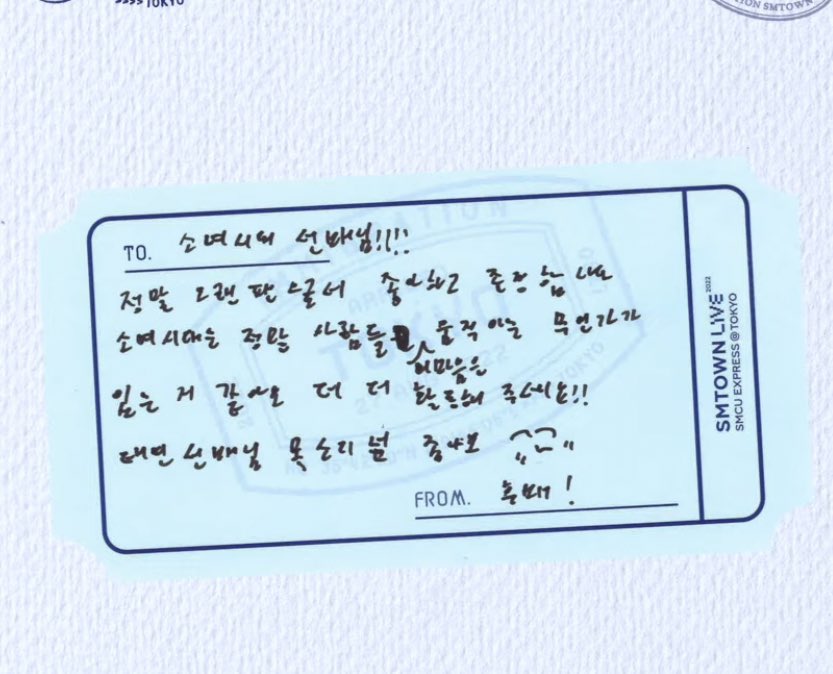 TOKYO
ION SMTOWN
TO. 소녀시대 선배님!!!!
정말 그랜 팬 스로서 좋아하고 존경합니다
소녀시대는 정말 사람들 움직이는 무언가가
의 마음을
있는 거 같아요 더 더 활동해 주세요!!
태연 선배님 목소리 넘 좋아요
FROM. 후배!
SMTOWN LIVE 2022
SMCU EXPRESS @TOKYO
TOKYO